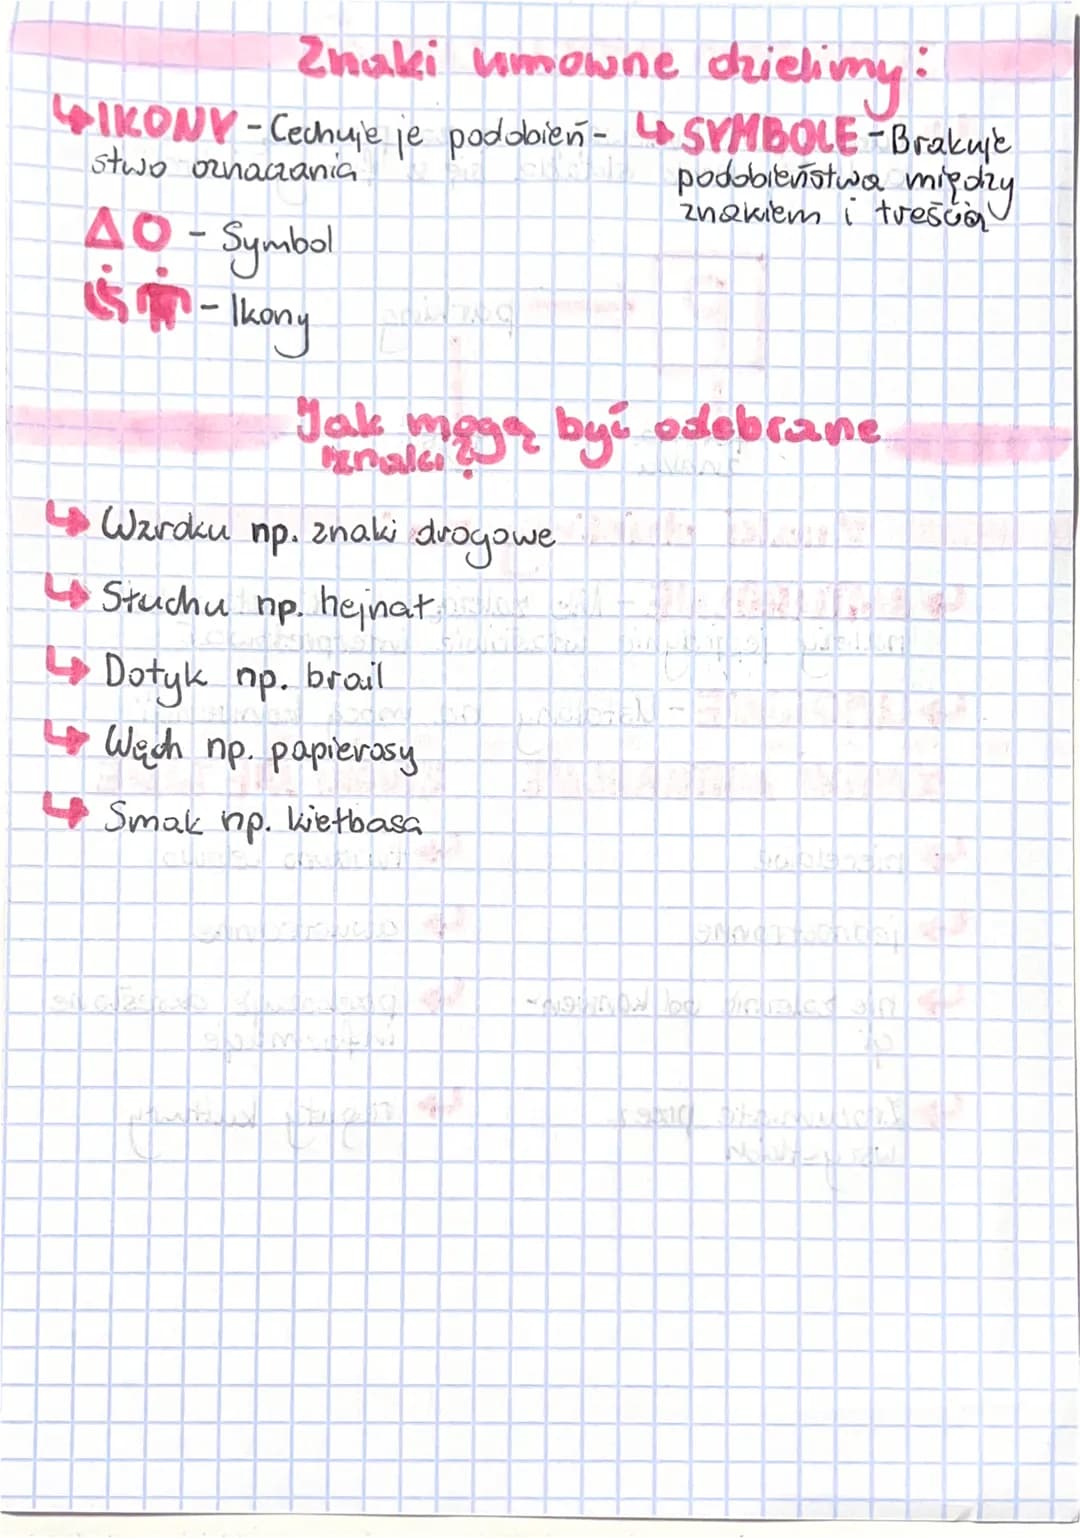 Znaki umowne dzielimy:
↳IKONY - Cechuje je podobień-
stwo oznaczania
↳ SYMBOLE - Brakuje
podobieństwa między
znakiem i treścią
- Symbol
- Ikony
Jak mogą być odebrane
znaki?
↳ Wzroku np. znaki drogowe
↳ Słuchu np. hejnał
↳ Dotyk np. brail
↳ Węch np. papierosy
↳ Smak np. kiełbasa